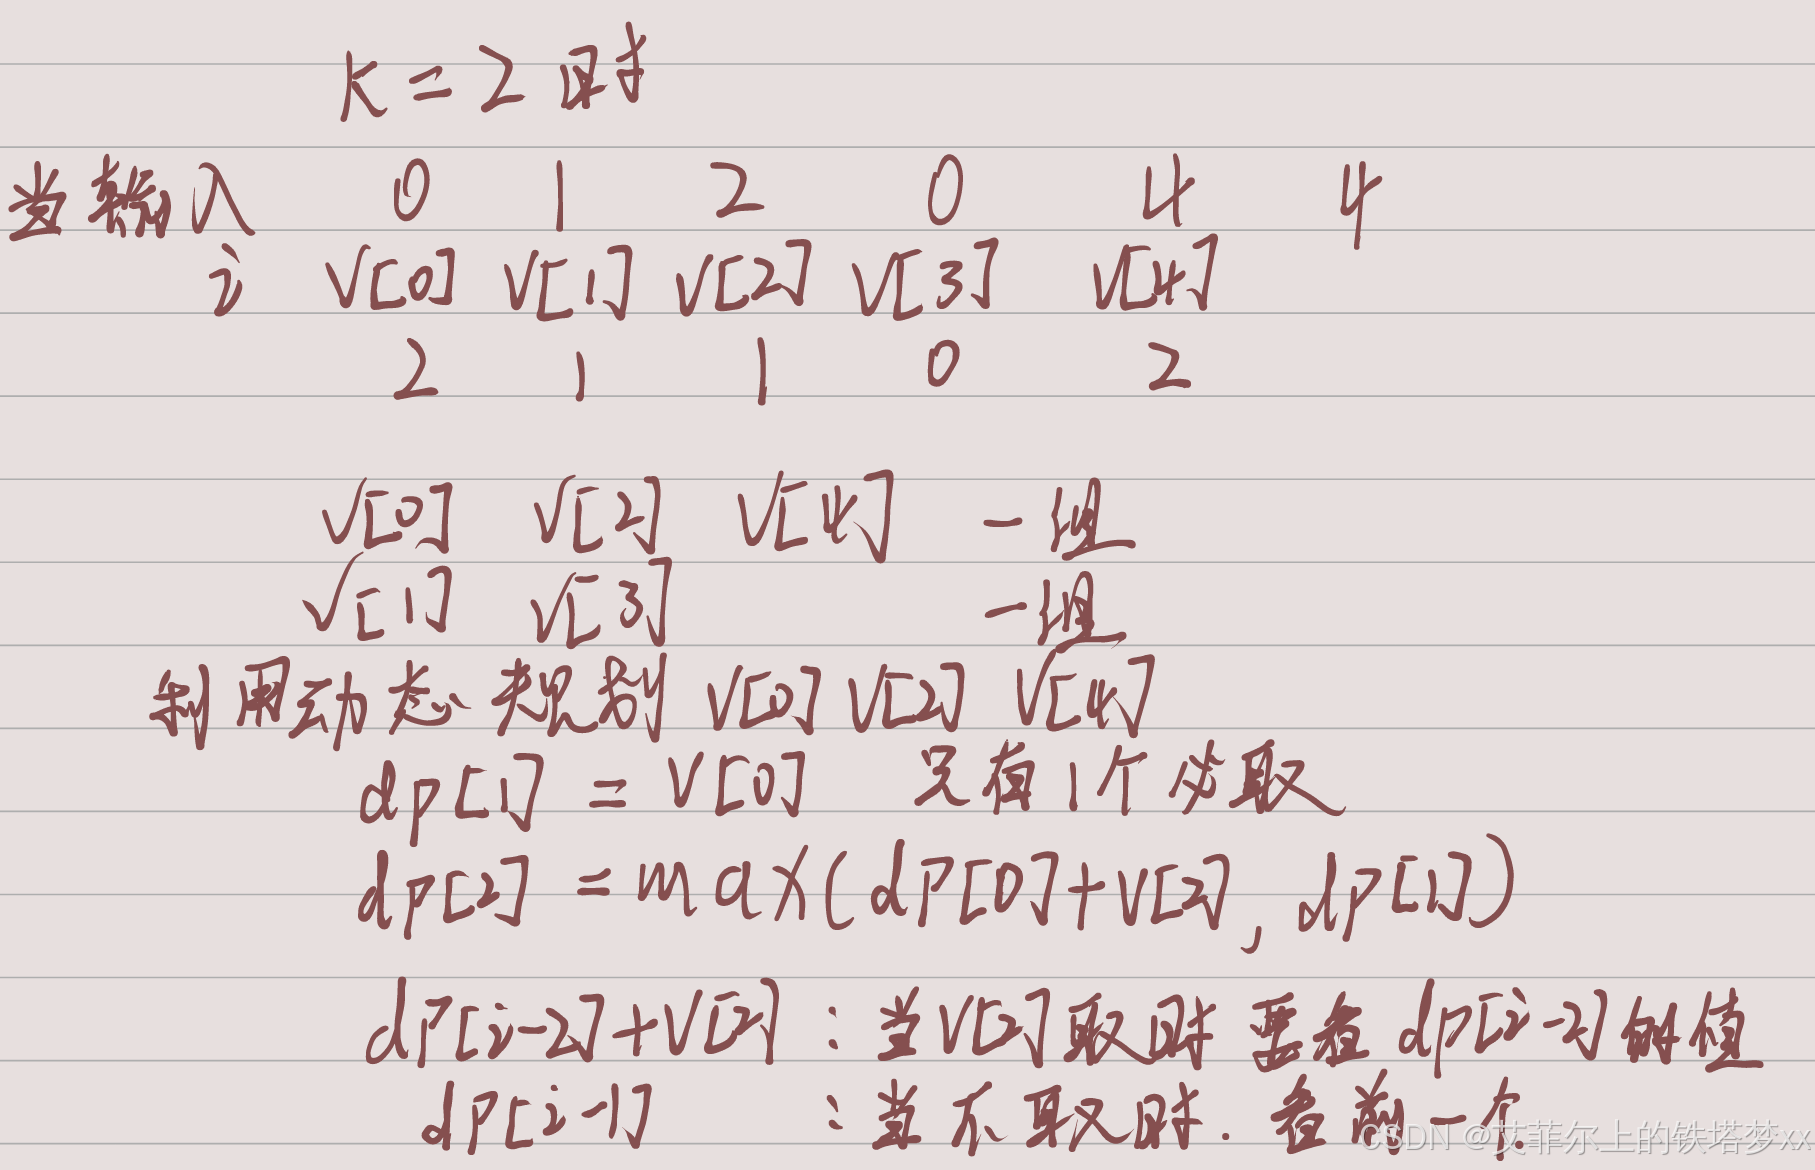 K=2时
当输入 0 1 2 0 4 4
i V[0] V[1] V[2] V[3] V[4]
2 1 1 0 2
V[0] V[2] V[4] 一组
V[1] V[3] 一组
利用动态规划 V[0] V[2] V[4]
dp[1] = V[0] 只有1个必取
dp[2] = max(dp[0]+V[2], dp[1])
dp[i-2]+V[2] : 当V[2]取时 要看 dp[i-2]的值
dp[i-1] : 当不取时. 看前一个.
CSDN @艾菲尔上的铁塔梦xx